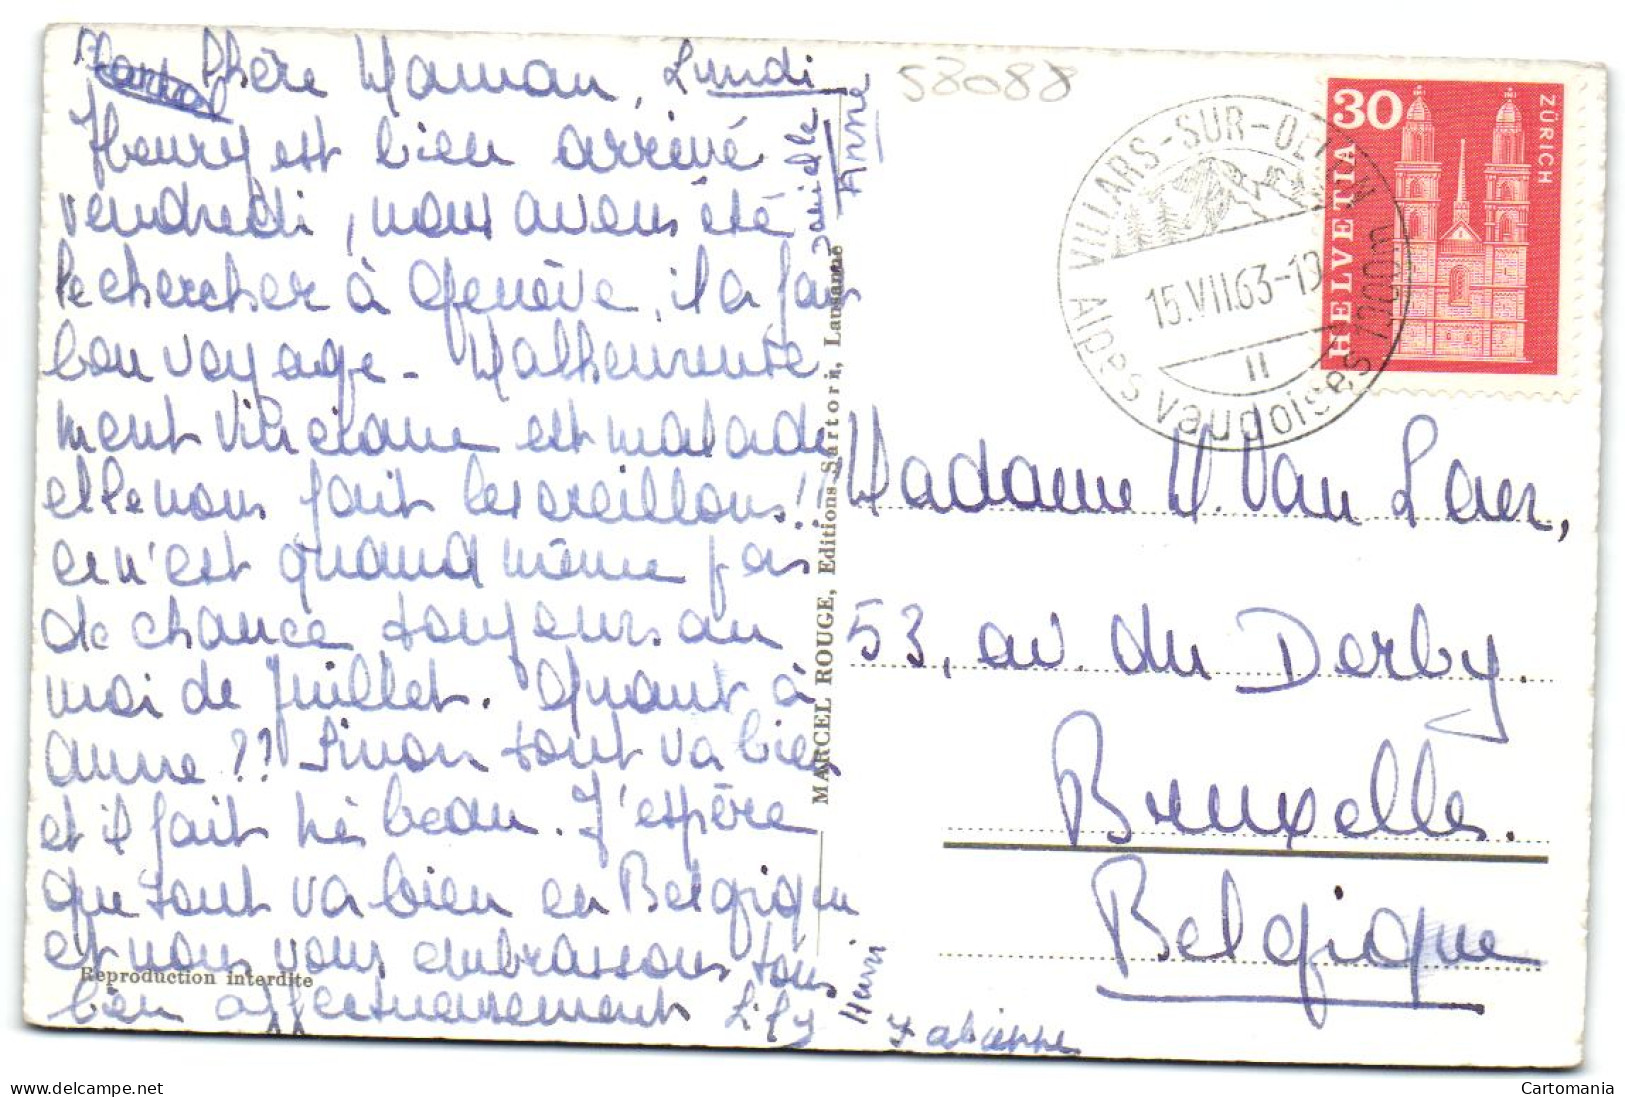 Chère Maman, Lundi
Henry est bien arrivé
vendredi, nous avons été
le chercher à Genève, il a fait
bon voyage - Malheureuse
ment Vinciane est malade
elle nous fait les oreillons!!
ce n'est quand même pas
de chance toujours au
moi de Juillet. Quant à
Anne ?? Sinon tout va bien
et il fait très beau. J'espère
que tout va bien en Belgique
et nous vous embrassons tous
bien affectueusement Lily
Henri
Fabienne
Anne
Reproduction interdite
MARCEL ROUGE, Editions Sartori, Lausanne
58088
VILLARS-SUR-OLLON 1200m
15.VII.63-19
II
Alpes vaudoises
30
HELVETIA
ZÜRICH
Madame W. Van Laer,
53, av. du Derby.
Bruxelles.
Belgique
delcampe.net
Cartomania